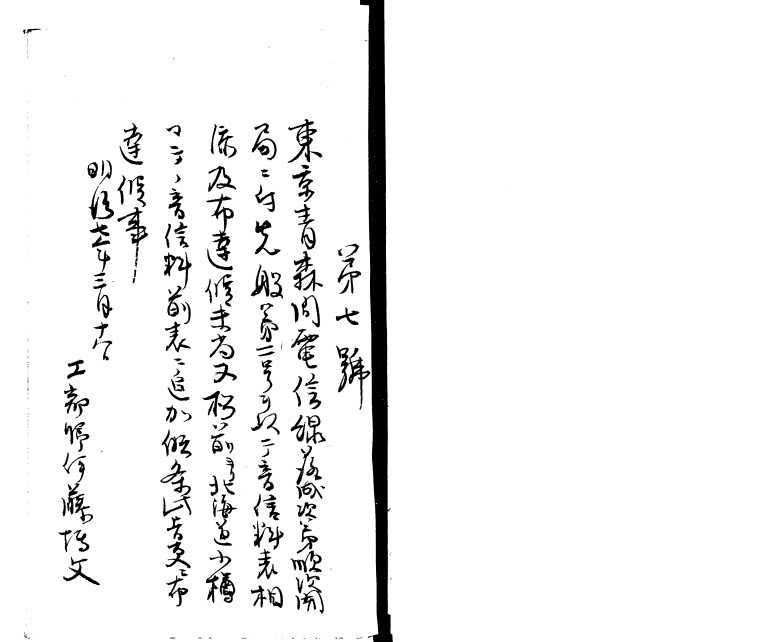 第七號
東京青森間電信線落成次第順次開
局ニ付先般第二号ヲ以テ音信料表相
添及布達候末尚又松前ヨリ北海道小樽
マテノ音信料前表ニ追加候条此旨更ニ布
達候事
明治七年三月十日
工部卿伊藤博文